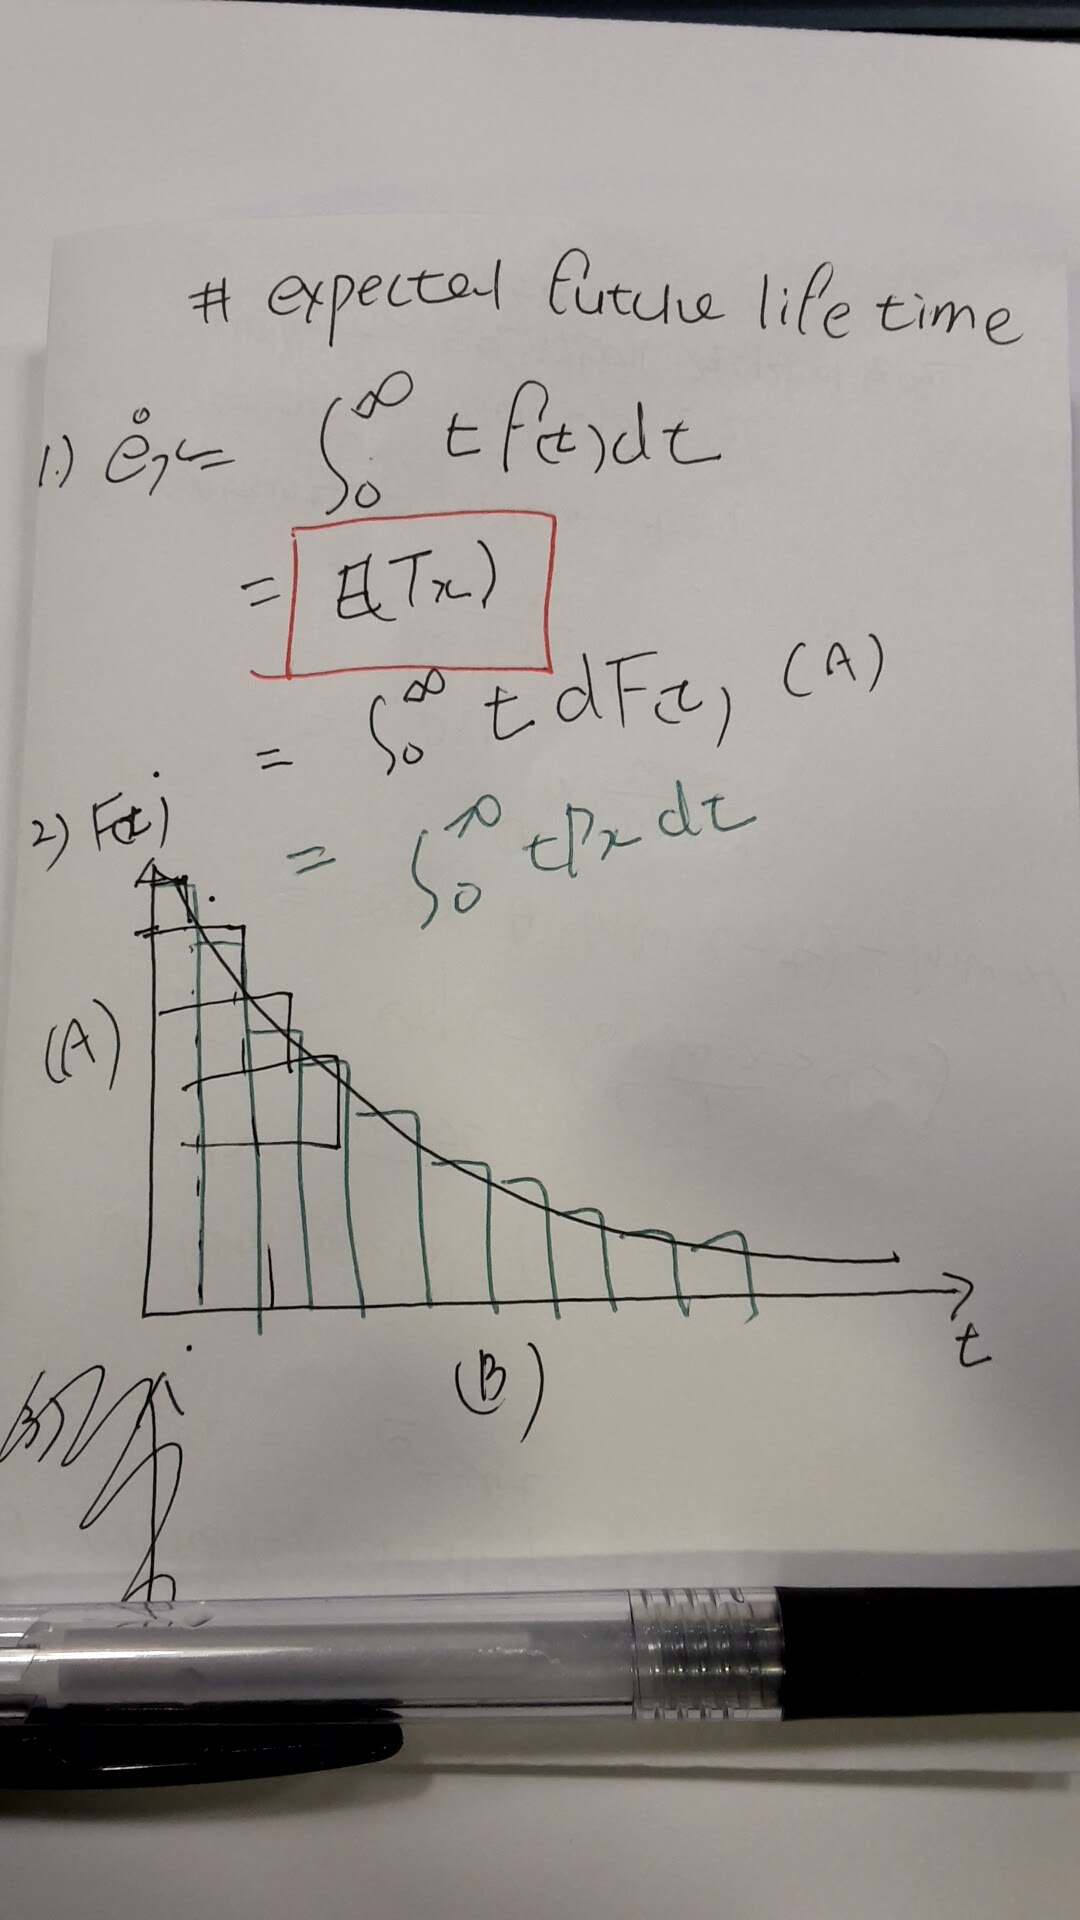 # expected future life time
1.) e̊x = ∫₀^∞ t f(t) dt
= E(Tx)
= ∫₀^∞ t dF(t) (A)
2) F(t)
= ∫₀^∞ tPx dt
(A)
t
(B)